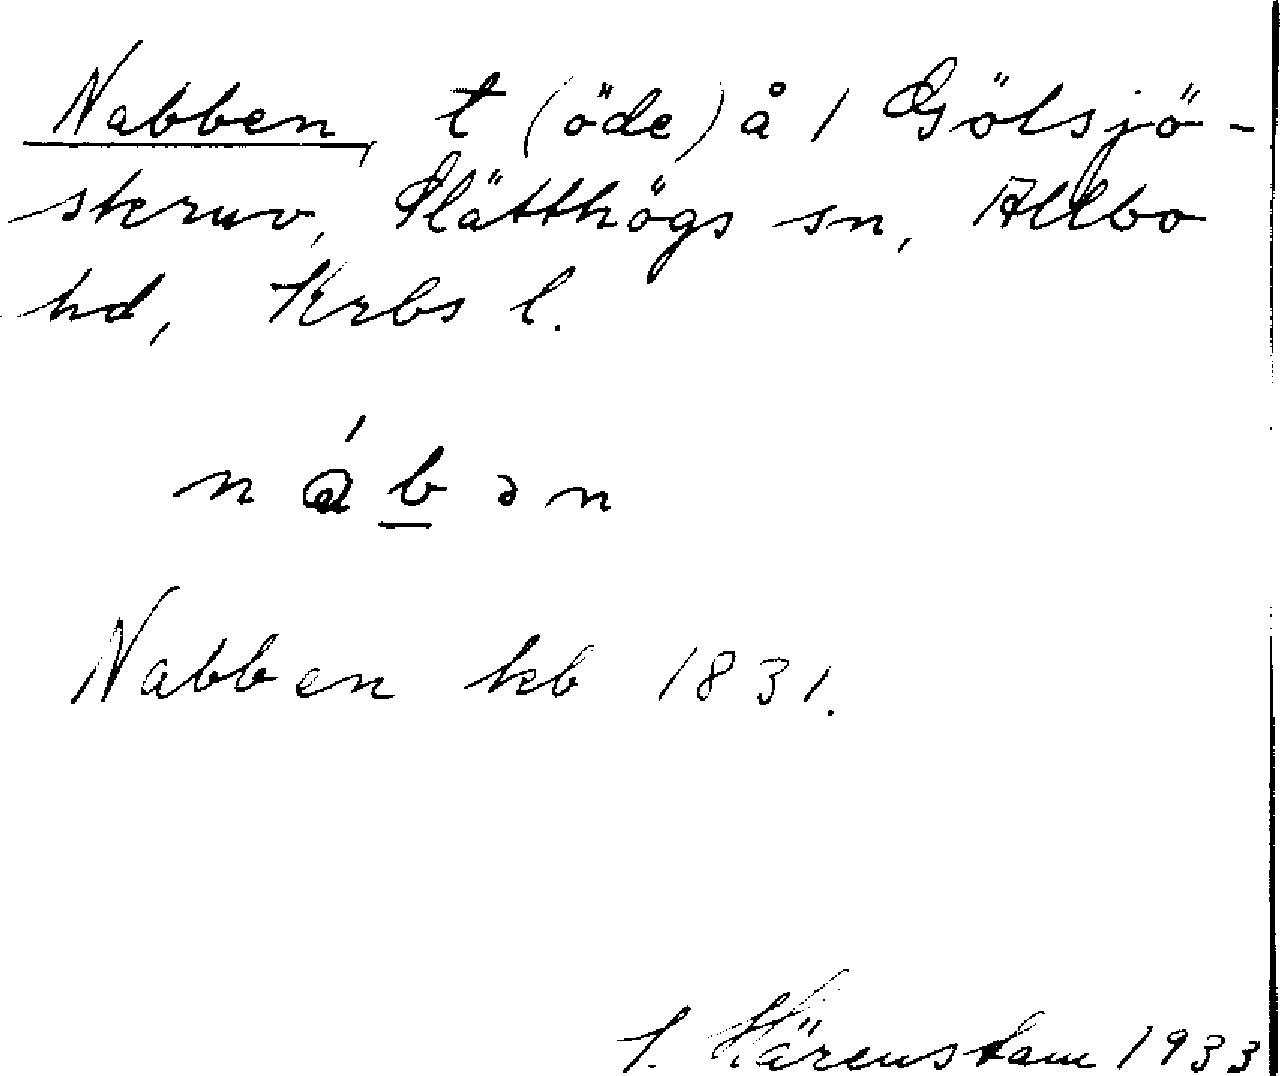 Nabben, t (öde) å 1 Gölsjö-
skruv, Slätthögs sn, Allbo
hd, Krbs l.
nábən
Nabben kb 1831.
I. Härenstam 1933